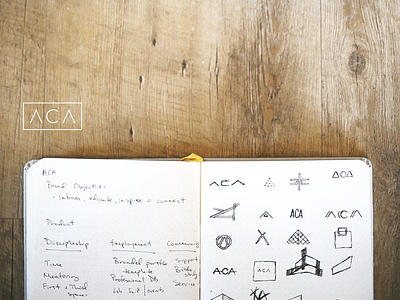 ACA
ACA
Brand Objectives
- inform, educate, inspire + connect
Product
Discipleship Employment Community
Time Branded portfolio Support
Mentoring template Bible study
First + Third Professional Dev Service
spaces Job fair events
ACA
ACA
ACA
ACA
ACA
ACA